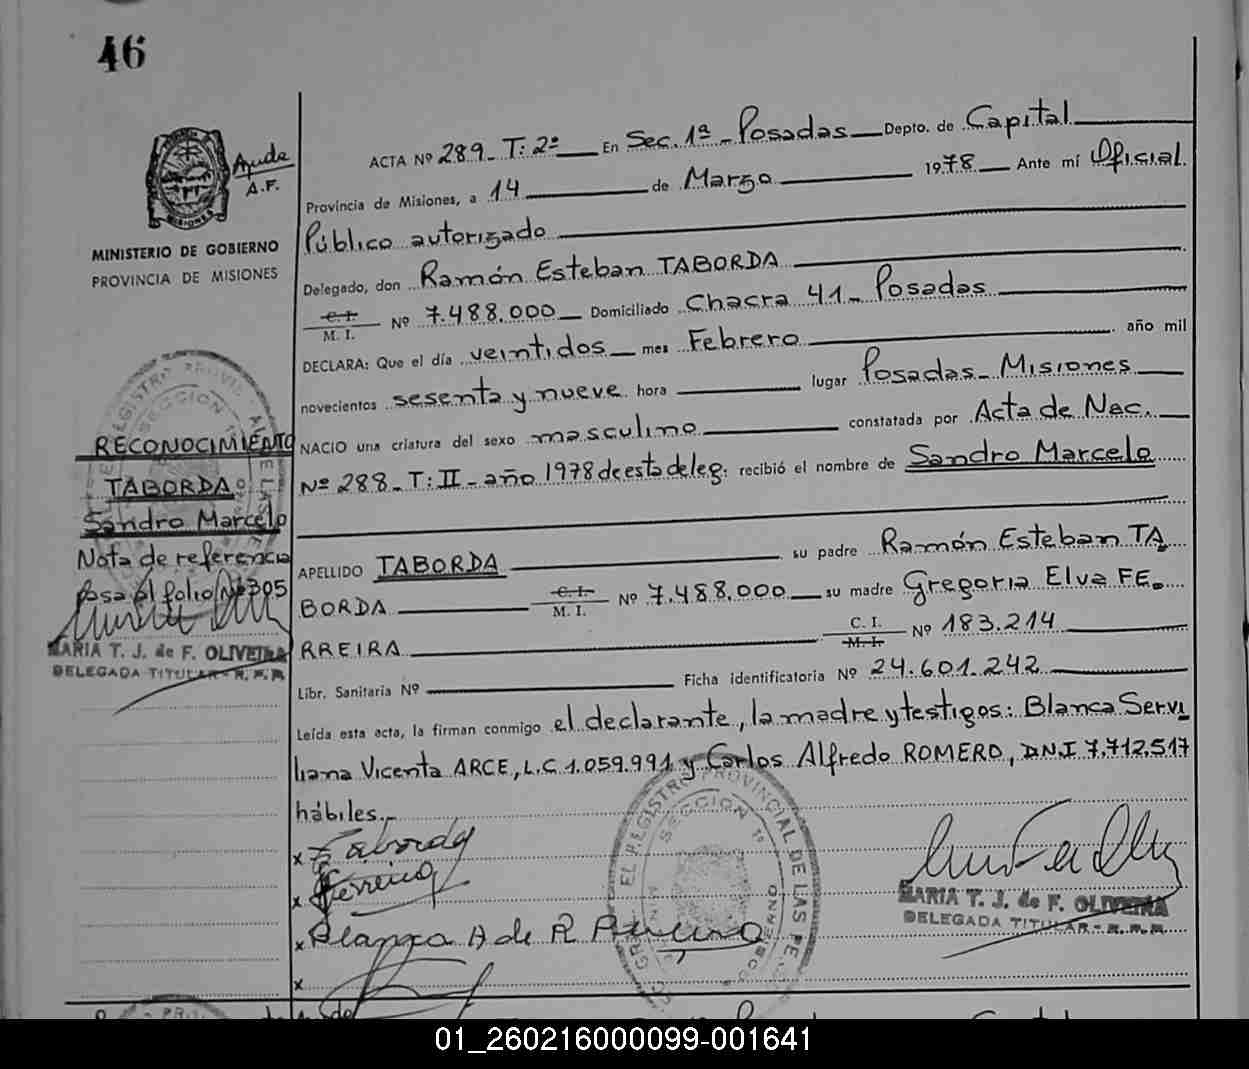 46
Ayuda
A.F.
MINISTERIO DE GOBIERNO
PROVINCIA DE MISIONES
ACTA Nº 289 - T: 2º En Sec. 1ª - Posadas Depto. de Capital
Provincia de Misiones, a 14 de Marzo 1978 Ante mí Oficial
Público autorizado
Delegado, don Ramón Esteban TABORDA
C. I.
M. I. Nº 7.488.000 Domiciliado Chacra 41 - Posadas
DECLARA: Que el día veintidos mes Febrero año mil
novecientos sesenta y nueve hora lugar Posadas - Misiones
NACIO una criatura del sexo masculino constatada por Acta de Nac.
Nº 288 - T: II - año 1978 de esta deleg. recibió el nombre de Sandro Marcelo
APELLIDO TABORDA su padre Ramón Esteban TA
BORDA C. I. M. I. Nº 7.488.000 su madre Gregoria Elva FE
RREIRA C. I. M. I. Nº 183.214
Libr. Sanitaria Nº Ficha identificatoria Nº 24.601.242
Leída esta acta, la firman conmigo el declarante, la madre y testigos: Blanca Servi
liana Vicenta ARCE, L.C 1.059.991 y Carlos Alfredo ROMERO, D.N.I 7.712.517
hábiles.-
x Taborda
x Ferreira
x Blanca A de R
x
RECONOCIMIENTO
TABORDA
Sandro Marcelo
Nota de referencia
Pasa al folio Nº 305
MARIA T. J. de F. OLIVEIRA
DELEGADA TITULAR - R. P. P.
REGISTRO PROVINCIAL DE LAS PE
SECCION 1º
GOBIERNO
MARIA T. J. de F. OLIVEIRA
DELEGADA TITULAR - R. P. P.
01_260216000099-001641